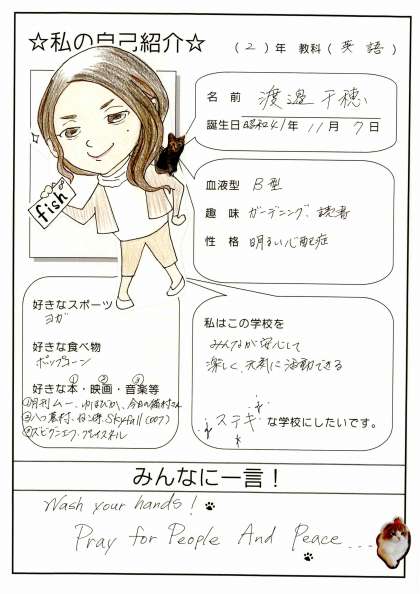 ☆私の自己紹介☆ (2)年 教科(英語)
名前 渡邉 千穂
誕生日 昭和41年 11月 7日
fish
血液型 B型
趣味 ガーデニング、読書
性格 明るい心配症
好きなスポーツ
ヨガ
好きな食べ物
ポップコーン
好きな本・映画・音楽等
① ② ③
①月刊ムー、ゆるびか、今日の猫村さん
②八つ墓村、Skyfall (007)
③ズビグニエフ・プレイスネル
私はこの学校を
みんなが安心して
楽しく、元気に活動できる
ステキな学校にしたいです。
みんなに一言!
Wash your hands!
Pray for People And Peace...